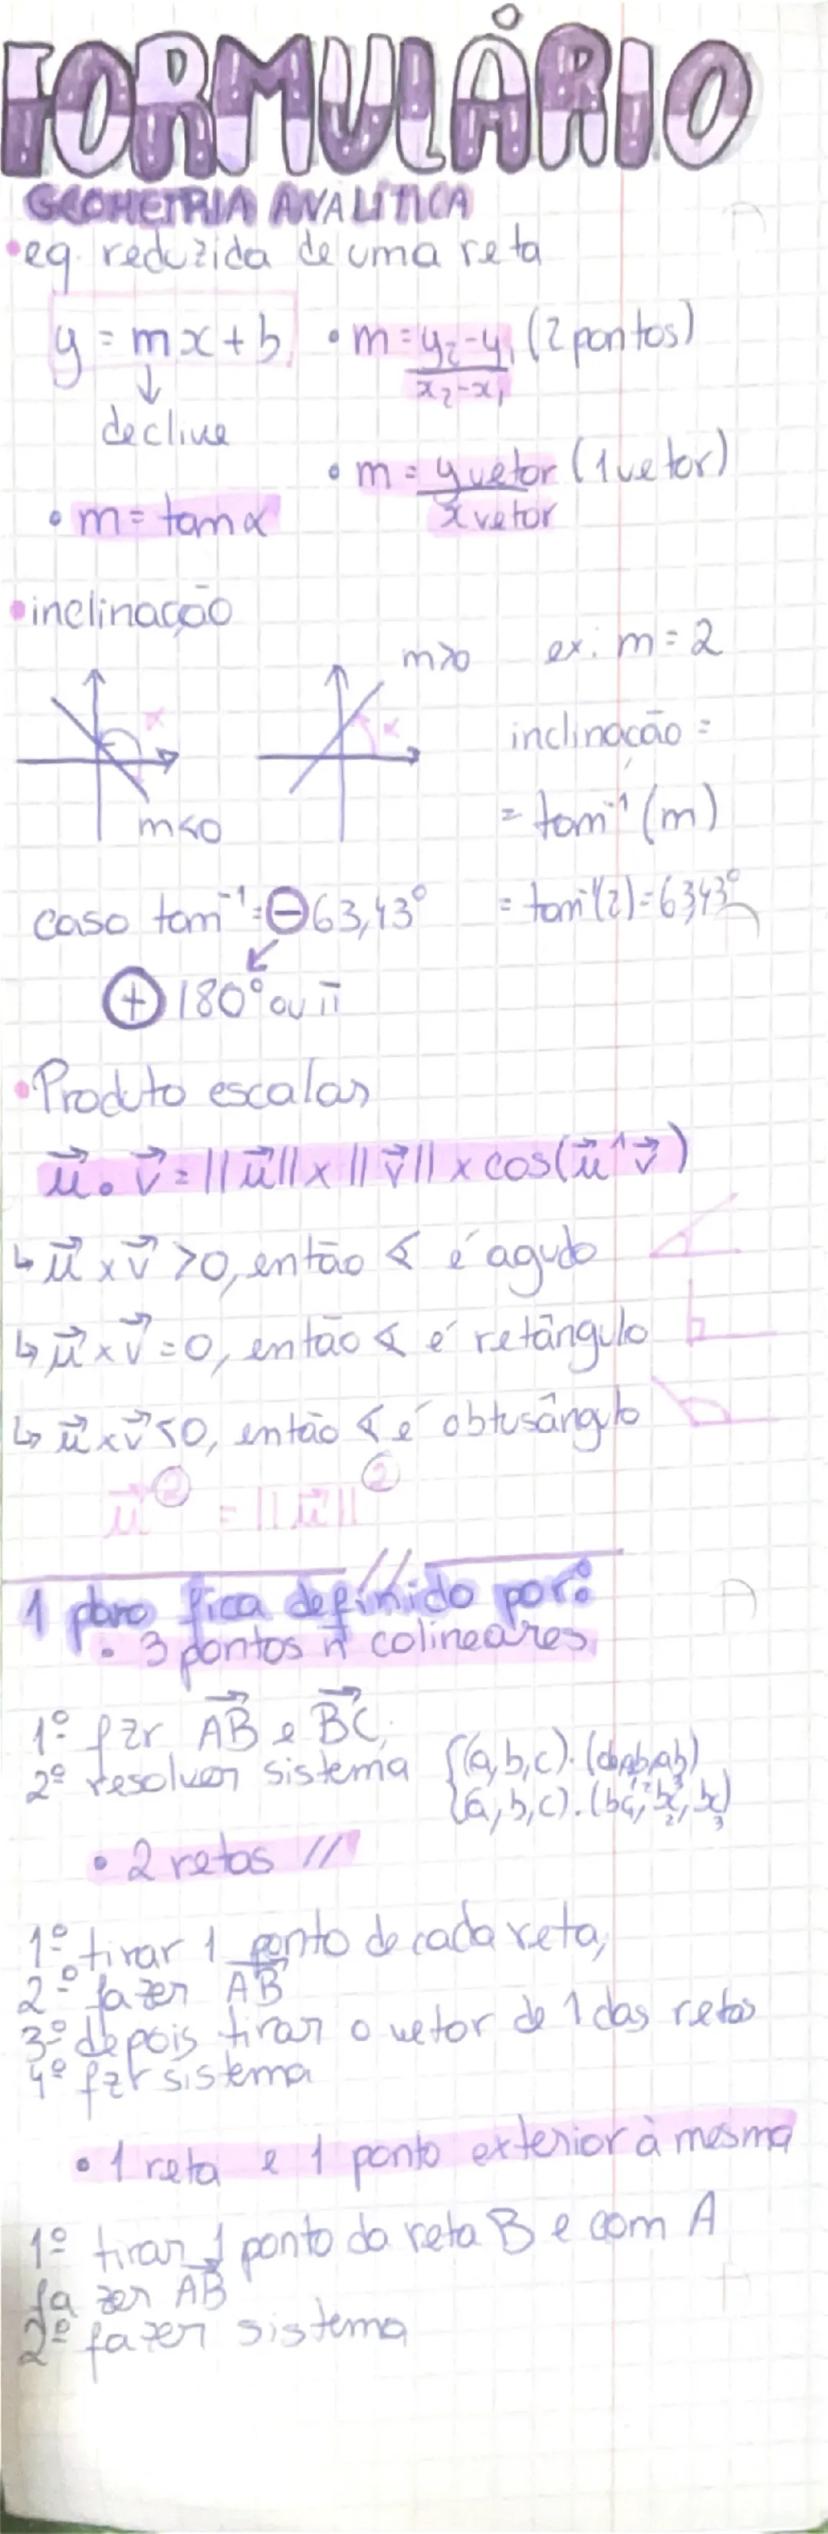 FORMULÁRIO
GEOMETRIA ANALÍTICA
• eq. reduzida de uma reta
y = mx + b • m = y₂-y₁/x₂-x₁ (2 pontos)
↓
declive
• m = yvetor/xvetor (1 vetor)
• m = tan α
• inclinação
m>0 ex: m = 2
α α
inclinação =
m<0
= tan⁻¹ (m)
caso tan⁻¹ = ⊖63,43° = tan⁻¹(2) = 63,43°
⊕ 180° ou π
• Produto escalar
u⃗ • v⃗ = ||u⃗|| x ||v⃗|| x cos(u⃗^v⃗)
↳ u⃗ x v⃗ >0, então ∢ é agudo
↳ u⃗ x v⃗ = 0, então ∢ é retângulo
↳ u⃗ x v⃗ <0, então ∢ é obtusângulo
u⃗² = ||u⃗||²
//
1 plano fica definido por:
• 3 pontos ñ colineares
1º fzr AB⃗ e BC⃗,
2º resolver sistema {(a,b,c).(ab₁,ab₂,ab₃)
{(a,b,c).(bc₁,bc₂,bc₃)
• 2 retas //
1º tirar 1 ponto de cada reta,
2º fazer AB⃗
3º depois tirar o vetor de 1 das retas
4º fzr sistema
• 1 reta e 1 ponto exterior à mesma
1º tirar 1 ponto da reta B e com A
fazer AB⃗
2º fazer sistema